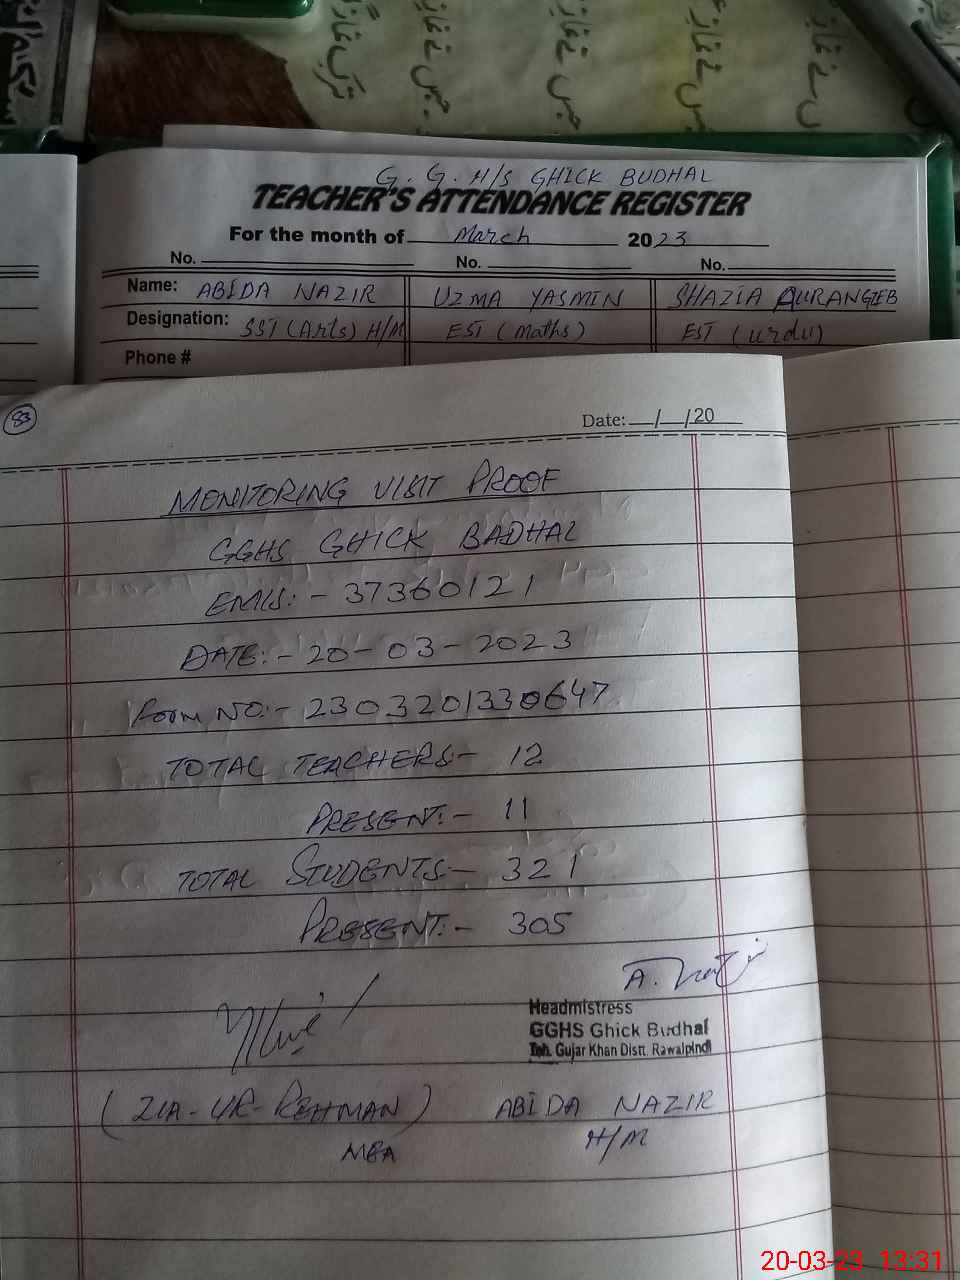 G. G. H/S GHICK BUDHAL
TEACHER'S ATTENDANCE REGISTER
For the month of March 2023
No. No. No.
Name: ABIDA NAZIR UZMA YASMIN SHAZIA AURANGZEB
Designation: SST (Arts) H/M EST (Maths) EST (urdu)
Phone #
83
Date: / /20
MONITORING VISIT PROOF
GGHS GHICK BADHAL
EMIS:- 37360121
DATE:- 20-03-2023
Form NO:- 2303201330647
TOTAL TEACHERS- 12
PRESENT:- 11
TOTAL STUDENTS- 321
PRESENT:- 305
A. Nazir
Headmistress
GGHS Ghick Budhal
Teh. Gujar Khan Distt. Rawalpindi
(ZIA-UR-REHMAN) ABIDA NAZIR
MEA H/M
20-03-23 13:31